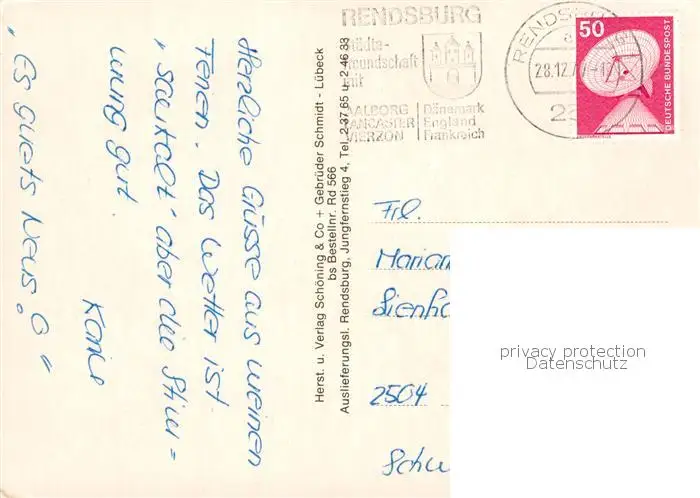 Herzliche Grüsse aus meinen
Ferien. Das Wetter ist
„saukalt" aber die Stim=
mung gut
Karin
„Es guets Neus !? "
Herst. u. Verlag Schöning & Co + Gebrüder Schmidt - Lübeck
bs Bestellnr. Rd 566
Auslieferungsl. Rendsburg, Jungfernstieg 4, Tel. 2 37 65 u. 2 46 38
RENDSBURG
Städte-
freundschaft
mit
AALBORG Dänemark
LANCASTER England
VIERZON Frankreich
RENDSBURG
a
28.12.7
50
DEUTSCHE BUNDESPOST
Frl.
Marian
Lienha
2504
Schw
privacy protection
Datenschutz